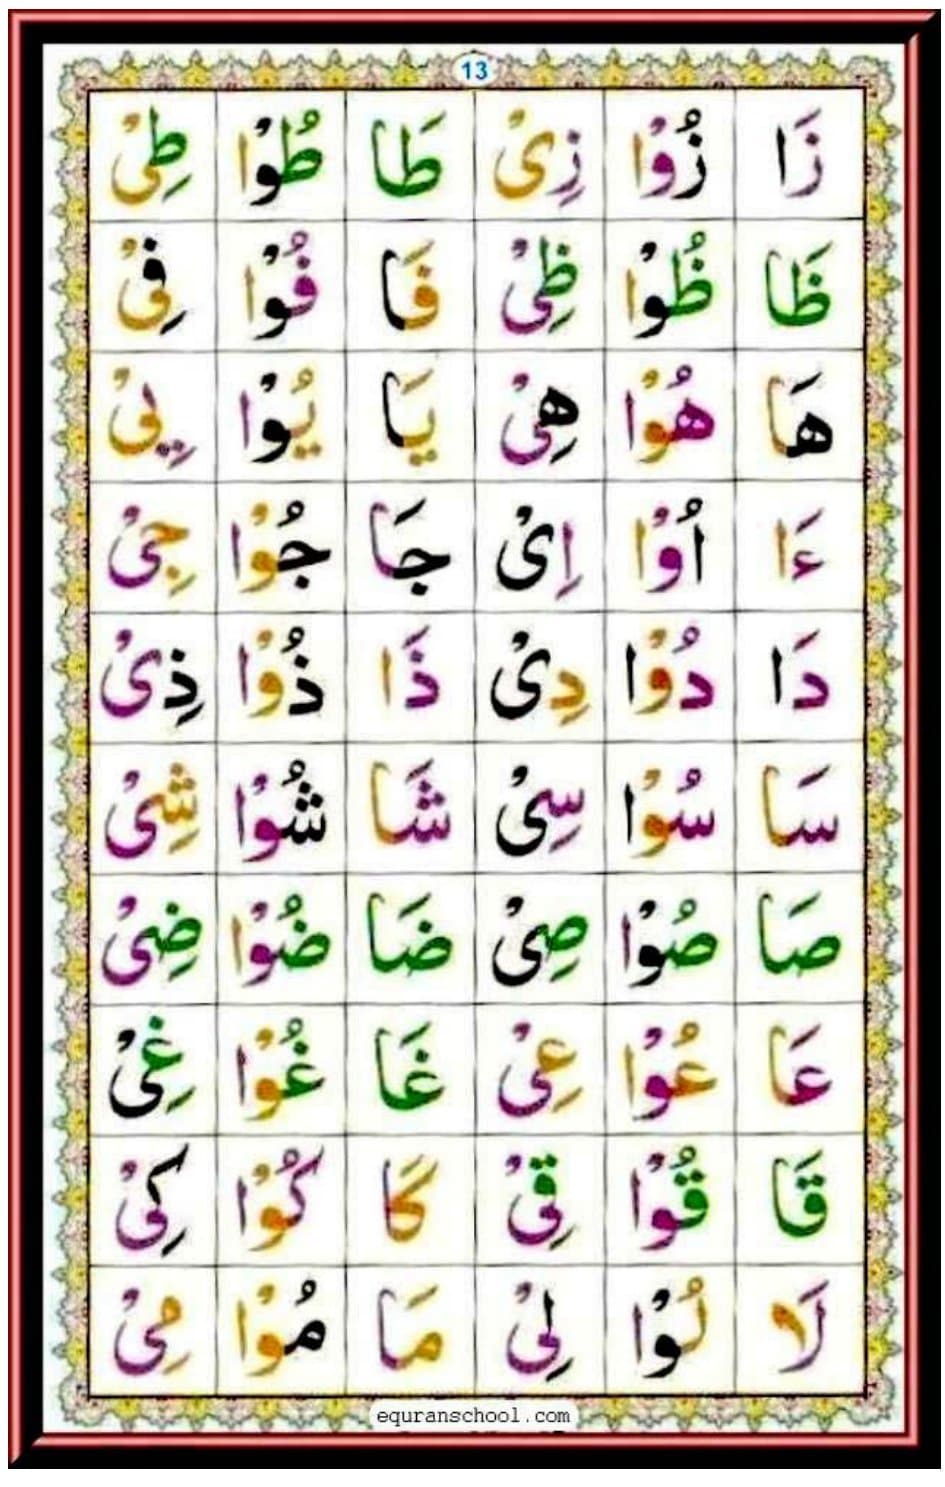 13
زَا زُوْا زِىْ طَا طُوْا طِىْ
ظَا ظُوْا ظِىْ فَا فُوْا فِىْ
هَا هُوْا هِىْ يَا يُوْا يِىْ
ءَا اُوْا اِىْ جَا جُوْا جِىْ
دَا دُوْا دِىْ ذَا ذُوْا ذِىْ
سَا سُوْا سِىْ شَا شُوْا شِىْ
صَا صُوْا صِىْ ضَا ضُوْا ضِىْ
عَا عُوْا عِىْ غَا غُوْا غِىْ
قَا قُوْا قِىْ كَا كُوْا كِىْ
لَا لُوْا لِىْ مَا مُوْا مِىْ
equranschool.com